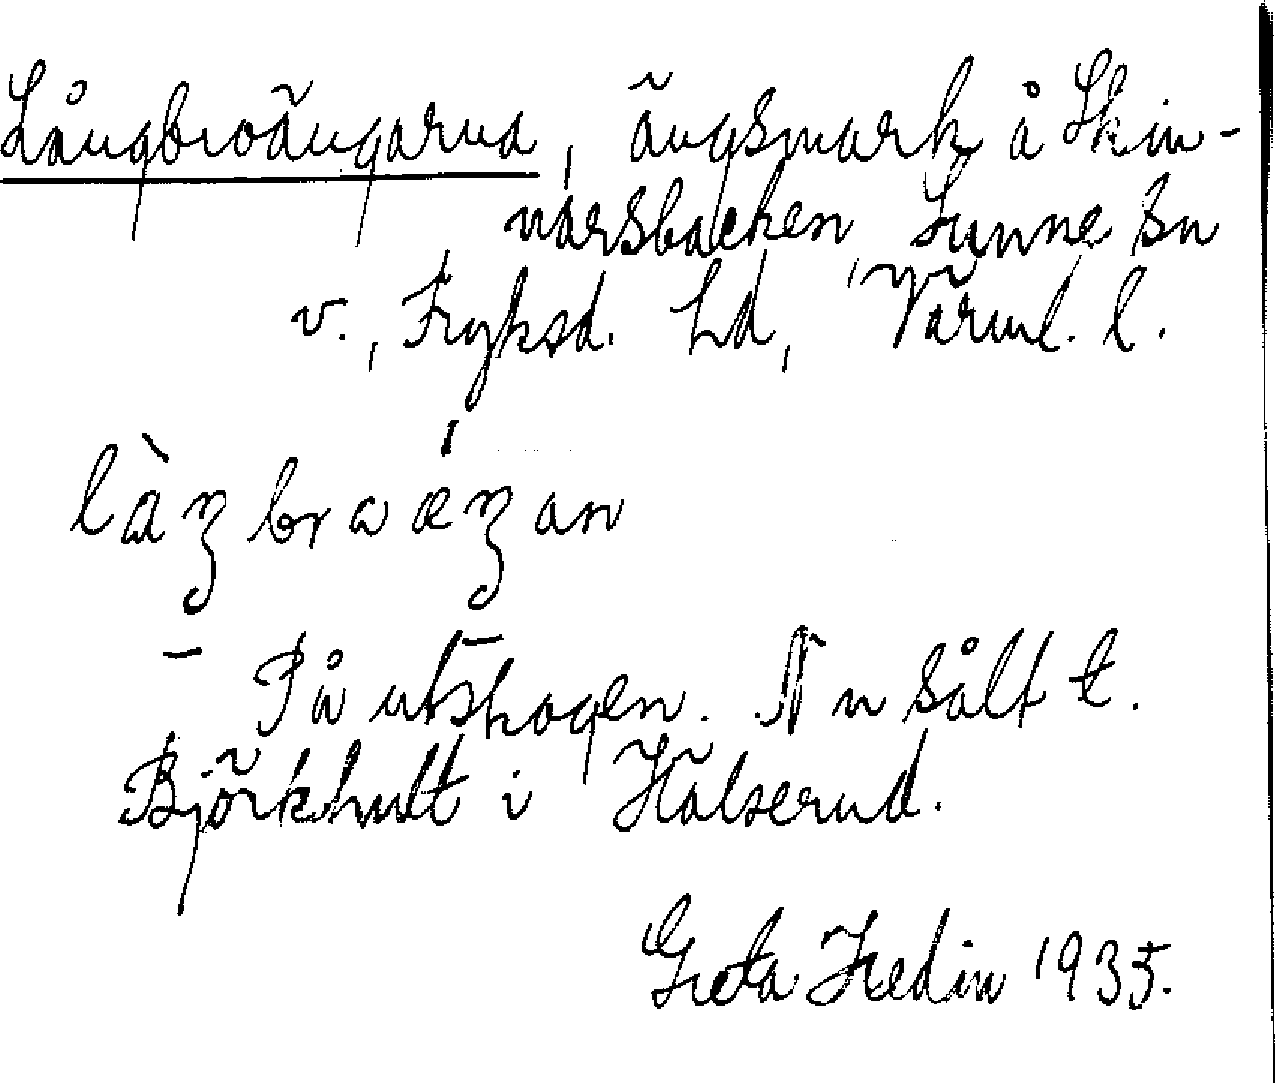 Långbroängarna, ängsmark å Skin-
narsbacken, Sunne sn
v., Fryksd. hd, Värml. l.
làŋbraæ´ŋan
– På utskogen. Nu sålt t.
Björkhult i Hälserud.
Greta Hedin 1935.